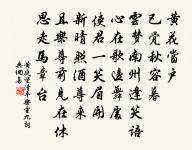 黃花當戶
已覺秋容暮
雲夢南州逢笑語
心在歌邊舞處
使君一笑眉開
新晴照酒尊來
且樂尊前見在休
思走馬章台
黃庭堅清平樂重九詞